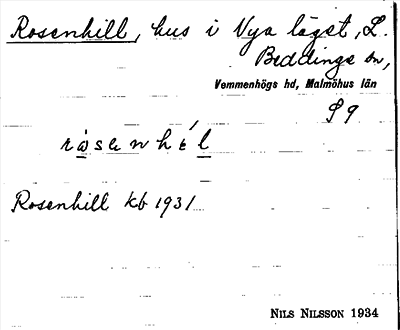 Rosenhill, hus i Nya läget, L.
Beddinge sn,
Vemmenhögs hd, Malmöhus län
S 9
Rosenhill kb 1931
NILS NILSSON 1934